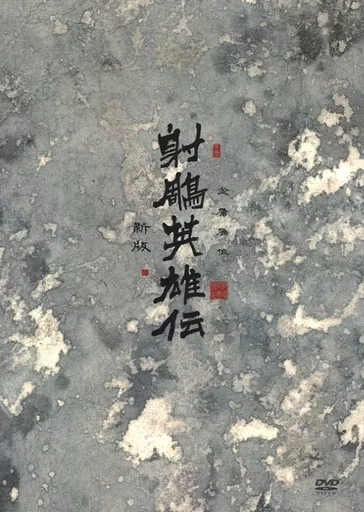 金庸原作
射鵰英雄伝
新版
DVD
VIDEO